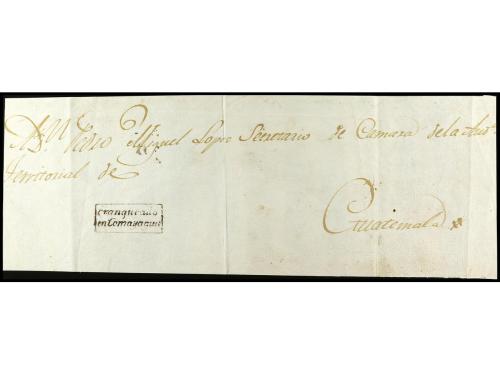 A Dn Pedro Miguel Lopez Secretario de Camara de la Auda
Territorial de
Guatemala
Franqueado
en Comayagua